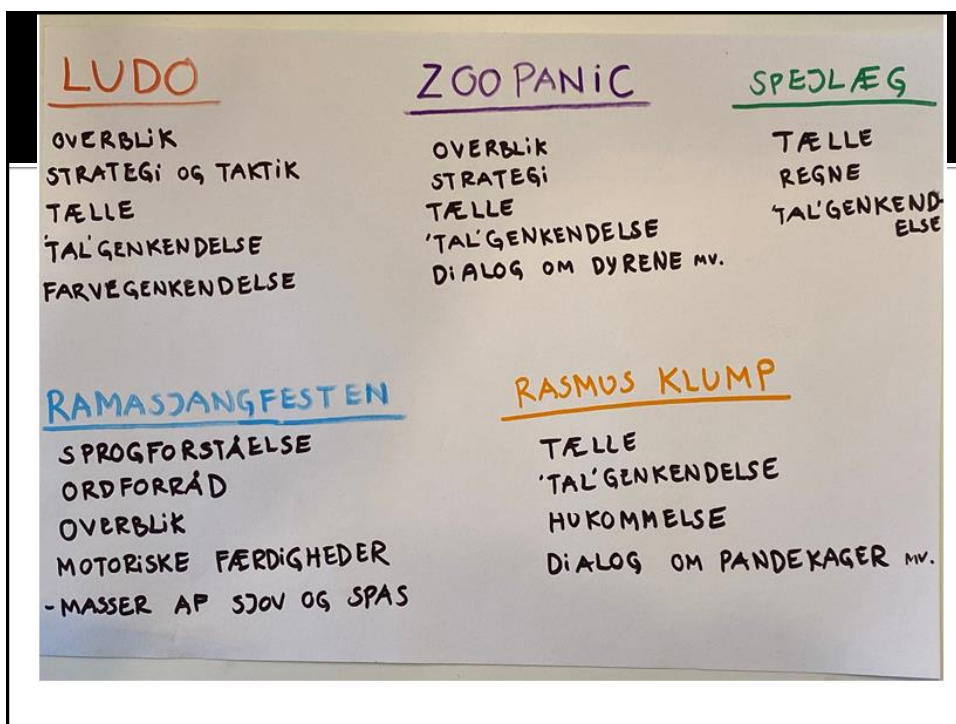 LUDO
OVERBLiK
STRATEGi OG TAKTiK
TÆLLE
'TAL'GENKENDELSE
FARVEGENKENDELSE
ZOO PANiC
OVERBLiK
STRATEGi
TÆLLE
'TAL'GENKENDELSE
DiALOG OM DYRENE MV.
SPEJLÆG
TÆLLE
REGNE
'TAL'GENKEND-
ELSE
RAMASJANGFESTEN
SPROGFORSTÅELSE
ORDFORRÅD
OVERBLiK
MOTORiSKE FÆRDiGHEDER
-MASSER AF SJOV OG SPAS
RASMUS KLUMP
TÆLLE
'TAL'GENKENDELSE
HUKOMMELSE
DiALOG OM PANDEKAGER MV.